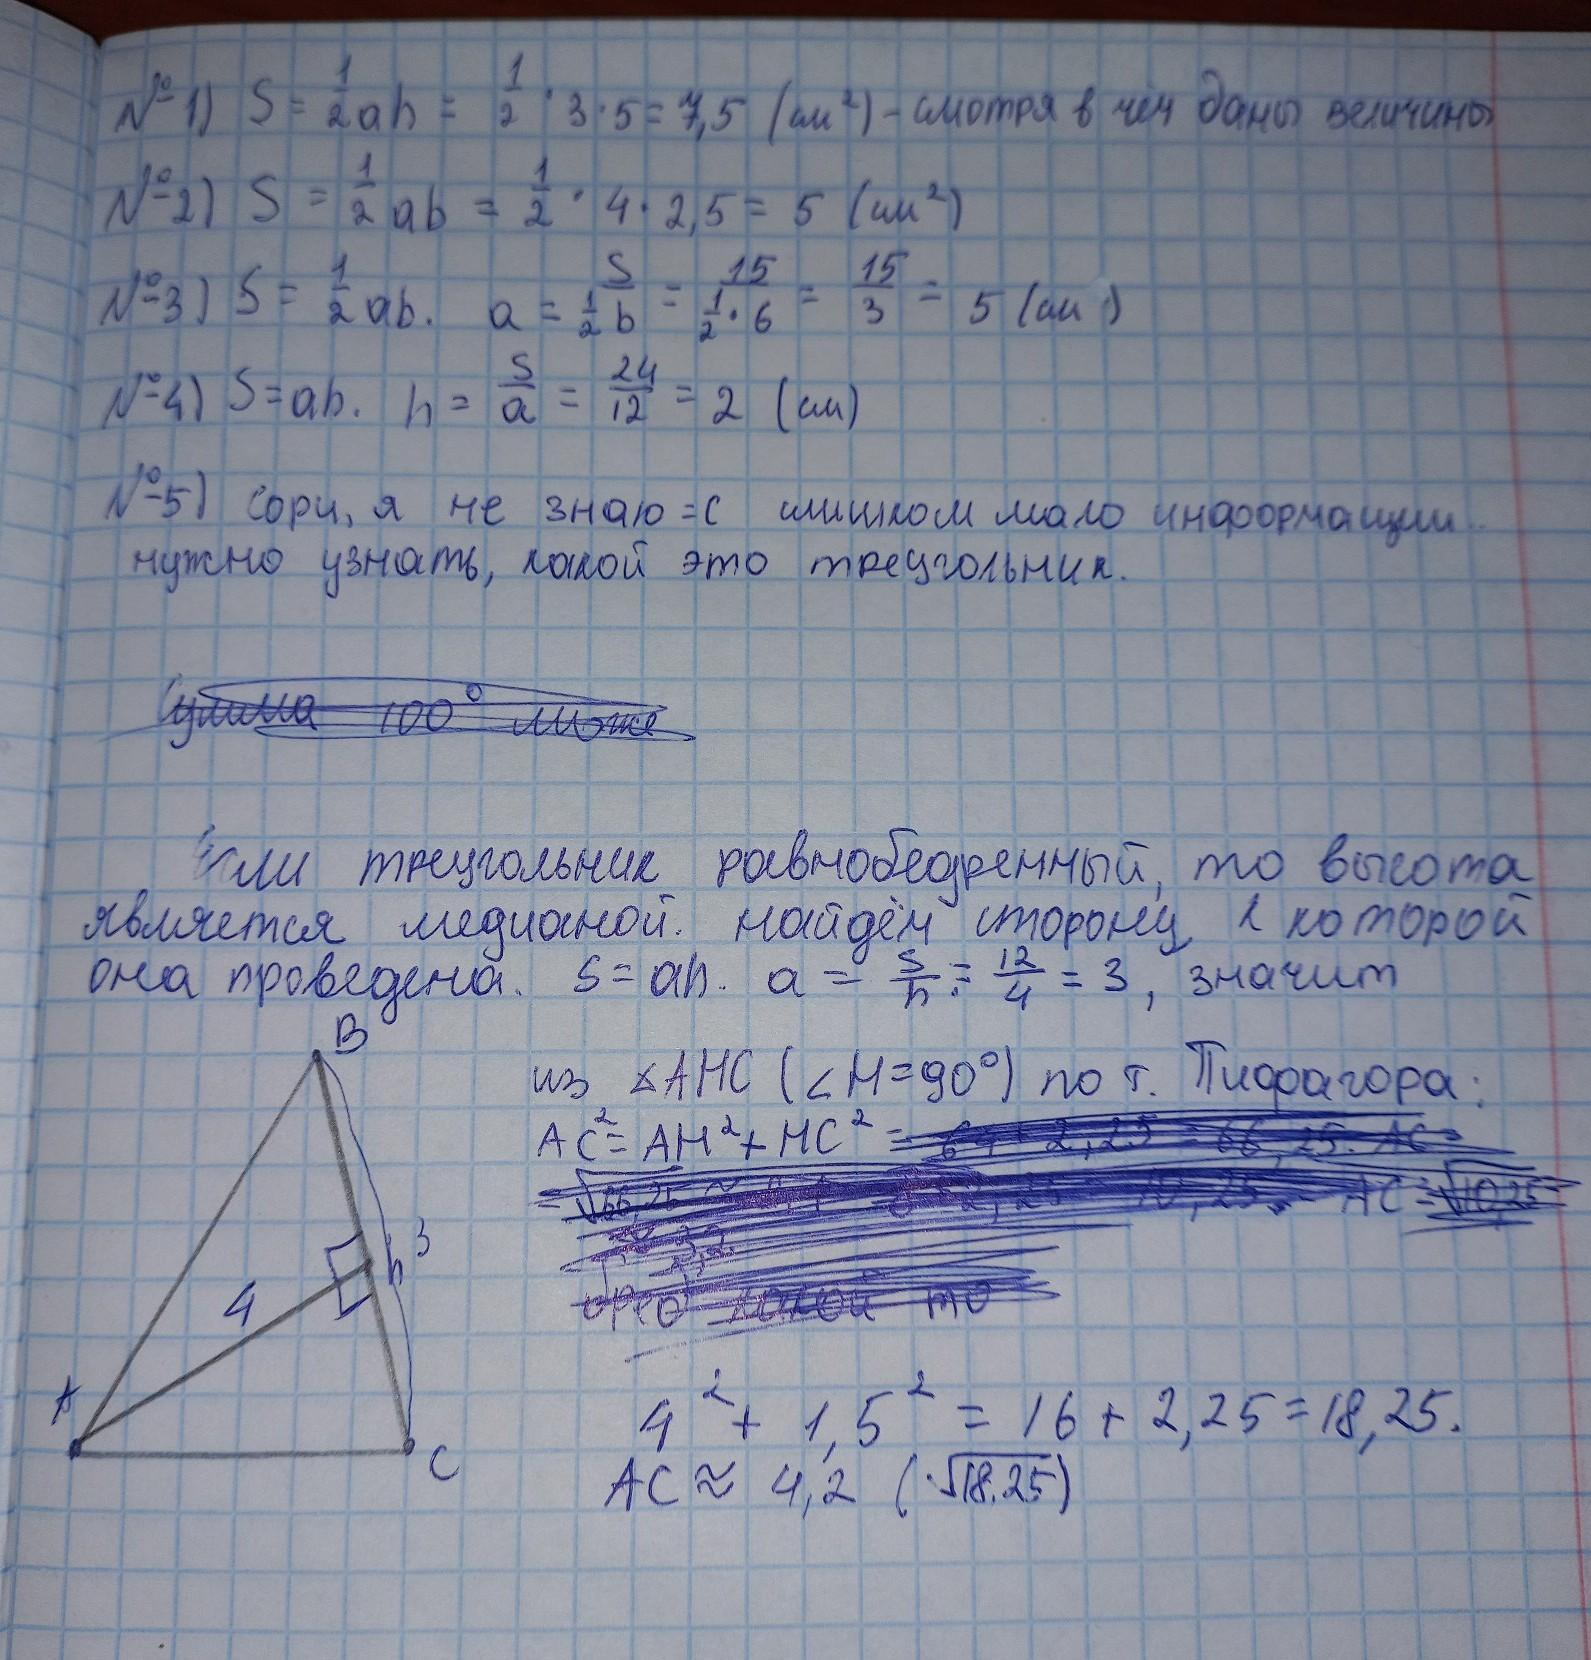 №1) S = 1/2 ah = 1/2 · 3 · 5 = 7,5 (см²) - смотря в чём даны величины
№2) S = 1/2 ab = 1/2 · 4 · 2,5 = 5 (см²)
№3) S = 1/2 ab. a = S/(1/2 b) = 15/(1/2 · 6) = 15/3 = 5 (см)
№4) S = ab. h = S/a = 24/12 = 2 (см)
№5) Сори, я не знаю =с слишком мало информации..
нужно узнать, какой это треугольник.
Сумма 100° може
Если треугольник равнобедренный, то высота
является медианой. найдём сторону, к которой
она проведена. S = ah. a = S/h = 12/4 = 3, значит
из △AHC (∠H=90°) по т. Пифагора:
AC² = AH² + HC² = 64 + 2,25 = 66,25. AC
= √66,25 ≈ AC = √10,25
какой то
4² + 1,5² = 16 + 2,25 = 18,25.
AC ≈ 4,2 (√18,25)
B
h 3
4
A
C